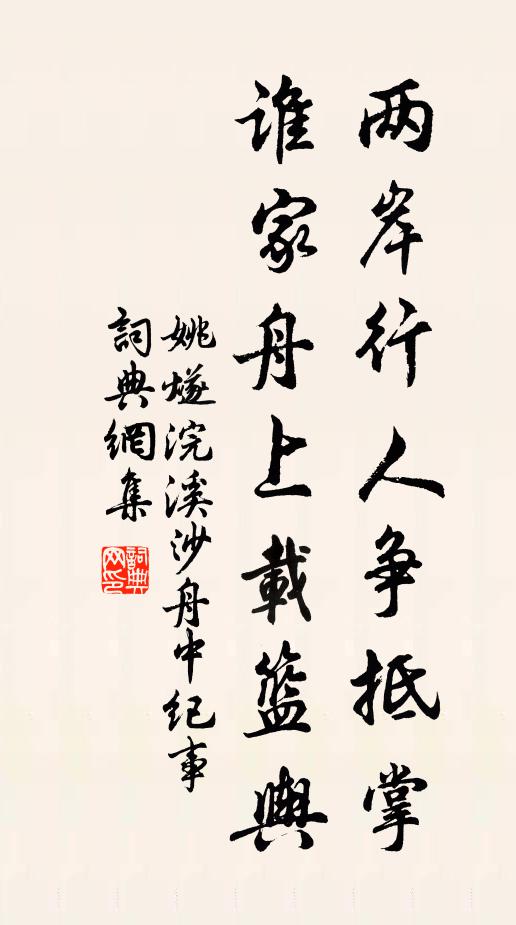 两岸行人争抵掌
谁家舟上載籃輿
姚燧浣溪沙舟中纪事
詞典網集
詞典网印